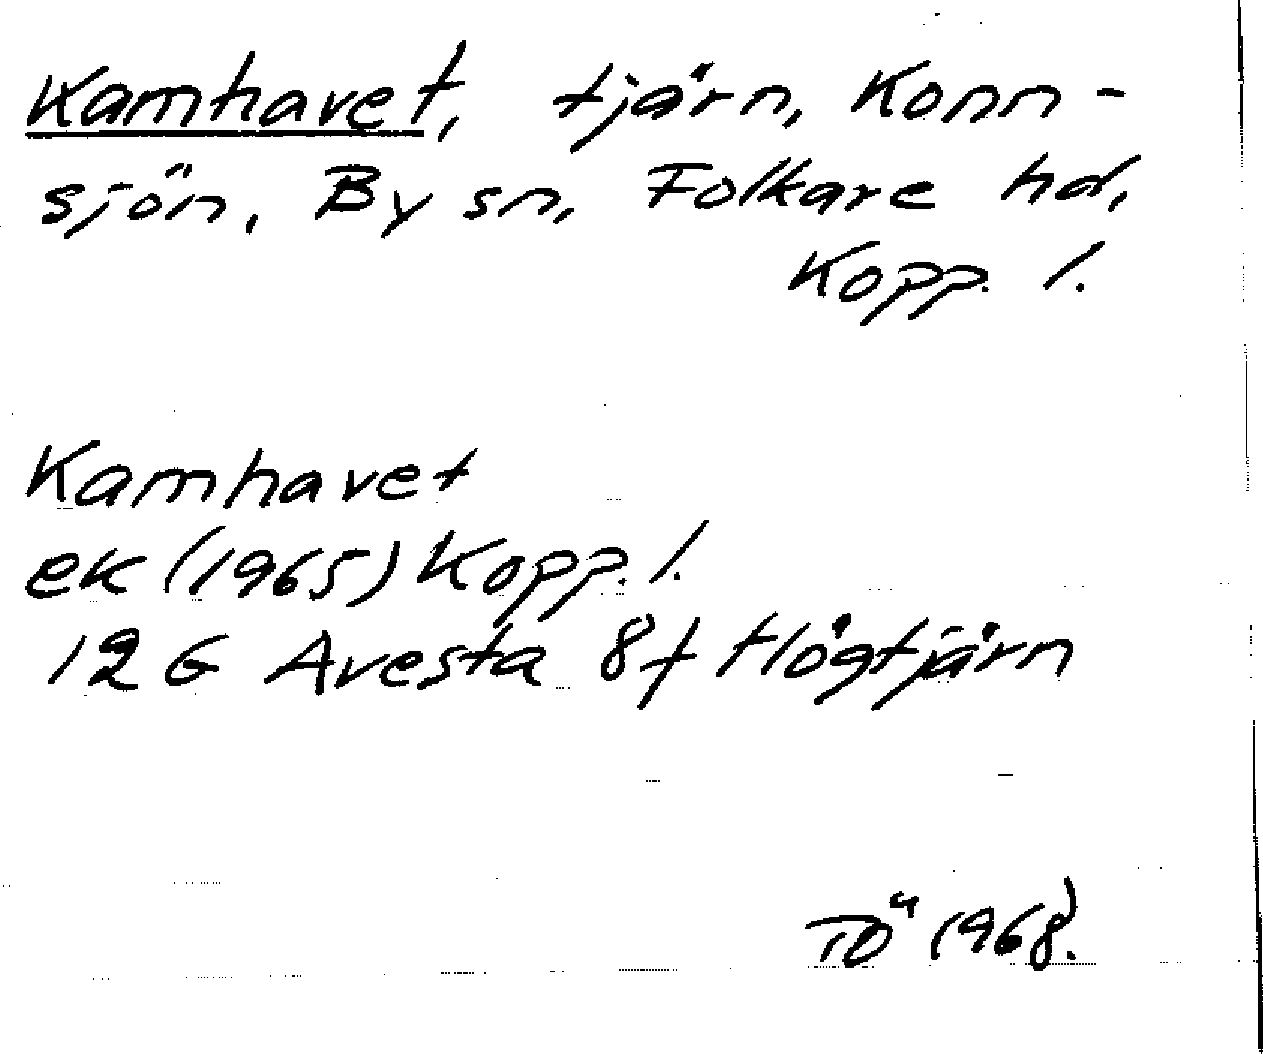 Kamhavet, tjärn, Konn-
sjön, By sn, Folkare hd,
Kopp. l.
Kamhavet
ek (1965) Kopp. l.
12 G Avesta 8f Högtjärn
TÖ (1968).